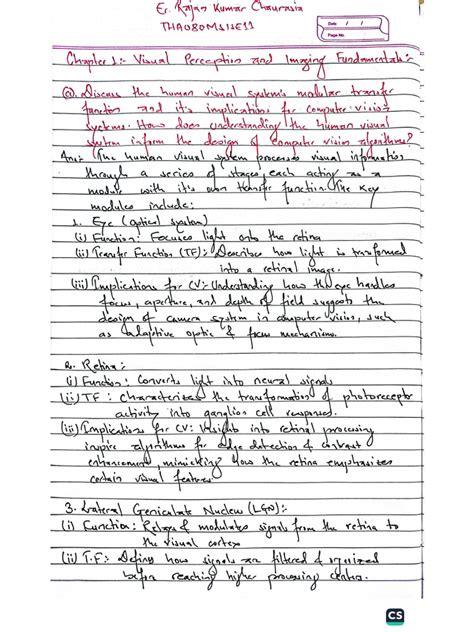 Er. Rajan Kumar Chaurasia
THA080MSIIE11
Date / /
Page No.
Chapter 1:- Visual Perception and Imaging Fundamentals:-
Q) Discuss the human visual system's modular transfer
function and it's implications for computer vision
systems. How does understanding the human visual
system inform the design of computer vision algorithms?
Ans: The human visual system processes visual information
through a series of stages, each acting as a
module with it's own transfer function. The key
modules include:
1. Eye (optical system)
(i) Function: Focuses light onto the retina
(ii) Transfer Function (TF): Describes how light is transformed
into a retinal image.
(iii) Implications for CV: Understanding how the eye handles
focus, aperture, and depth of field suggests the
design of camera system in computer vision, such
as adaptive optic & focus mechanisms.
2. Retina:
(i) Function: Converts light into neural signals
(ii) TF: Characterizes the transformation of photoreceptor
activity into ganglion cell responses.
(iii) Implications for CV: Insights into retinal processing
inspire algorithms for edge detection & contrast
enhancement, mimicking how the retina emphasizes
certain visual features
3. Lateral Geniculate Nucleus (LGN):-
(i) Function: Relays & modulates signals from the retina to
the visual cortex
(ii) T.F: Defines how signals are filtered & organized
before reaching higher processing centres.
CS